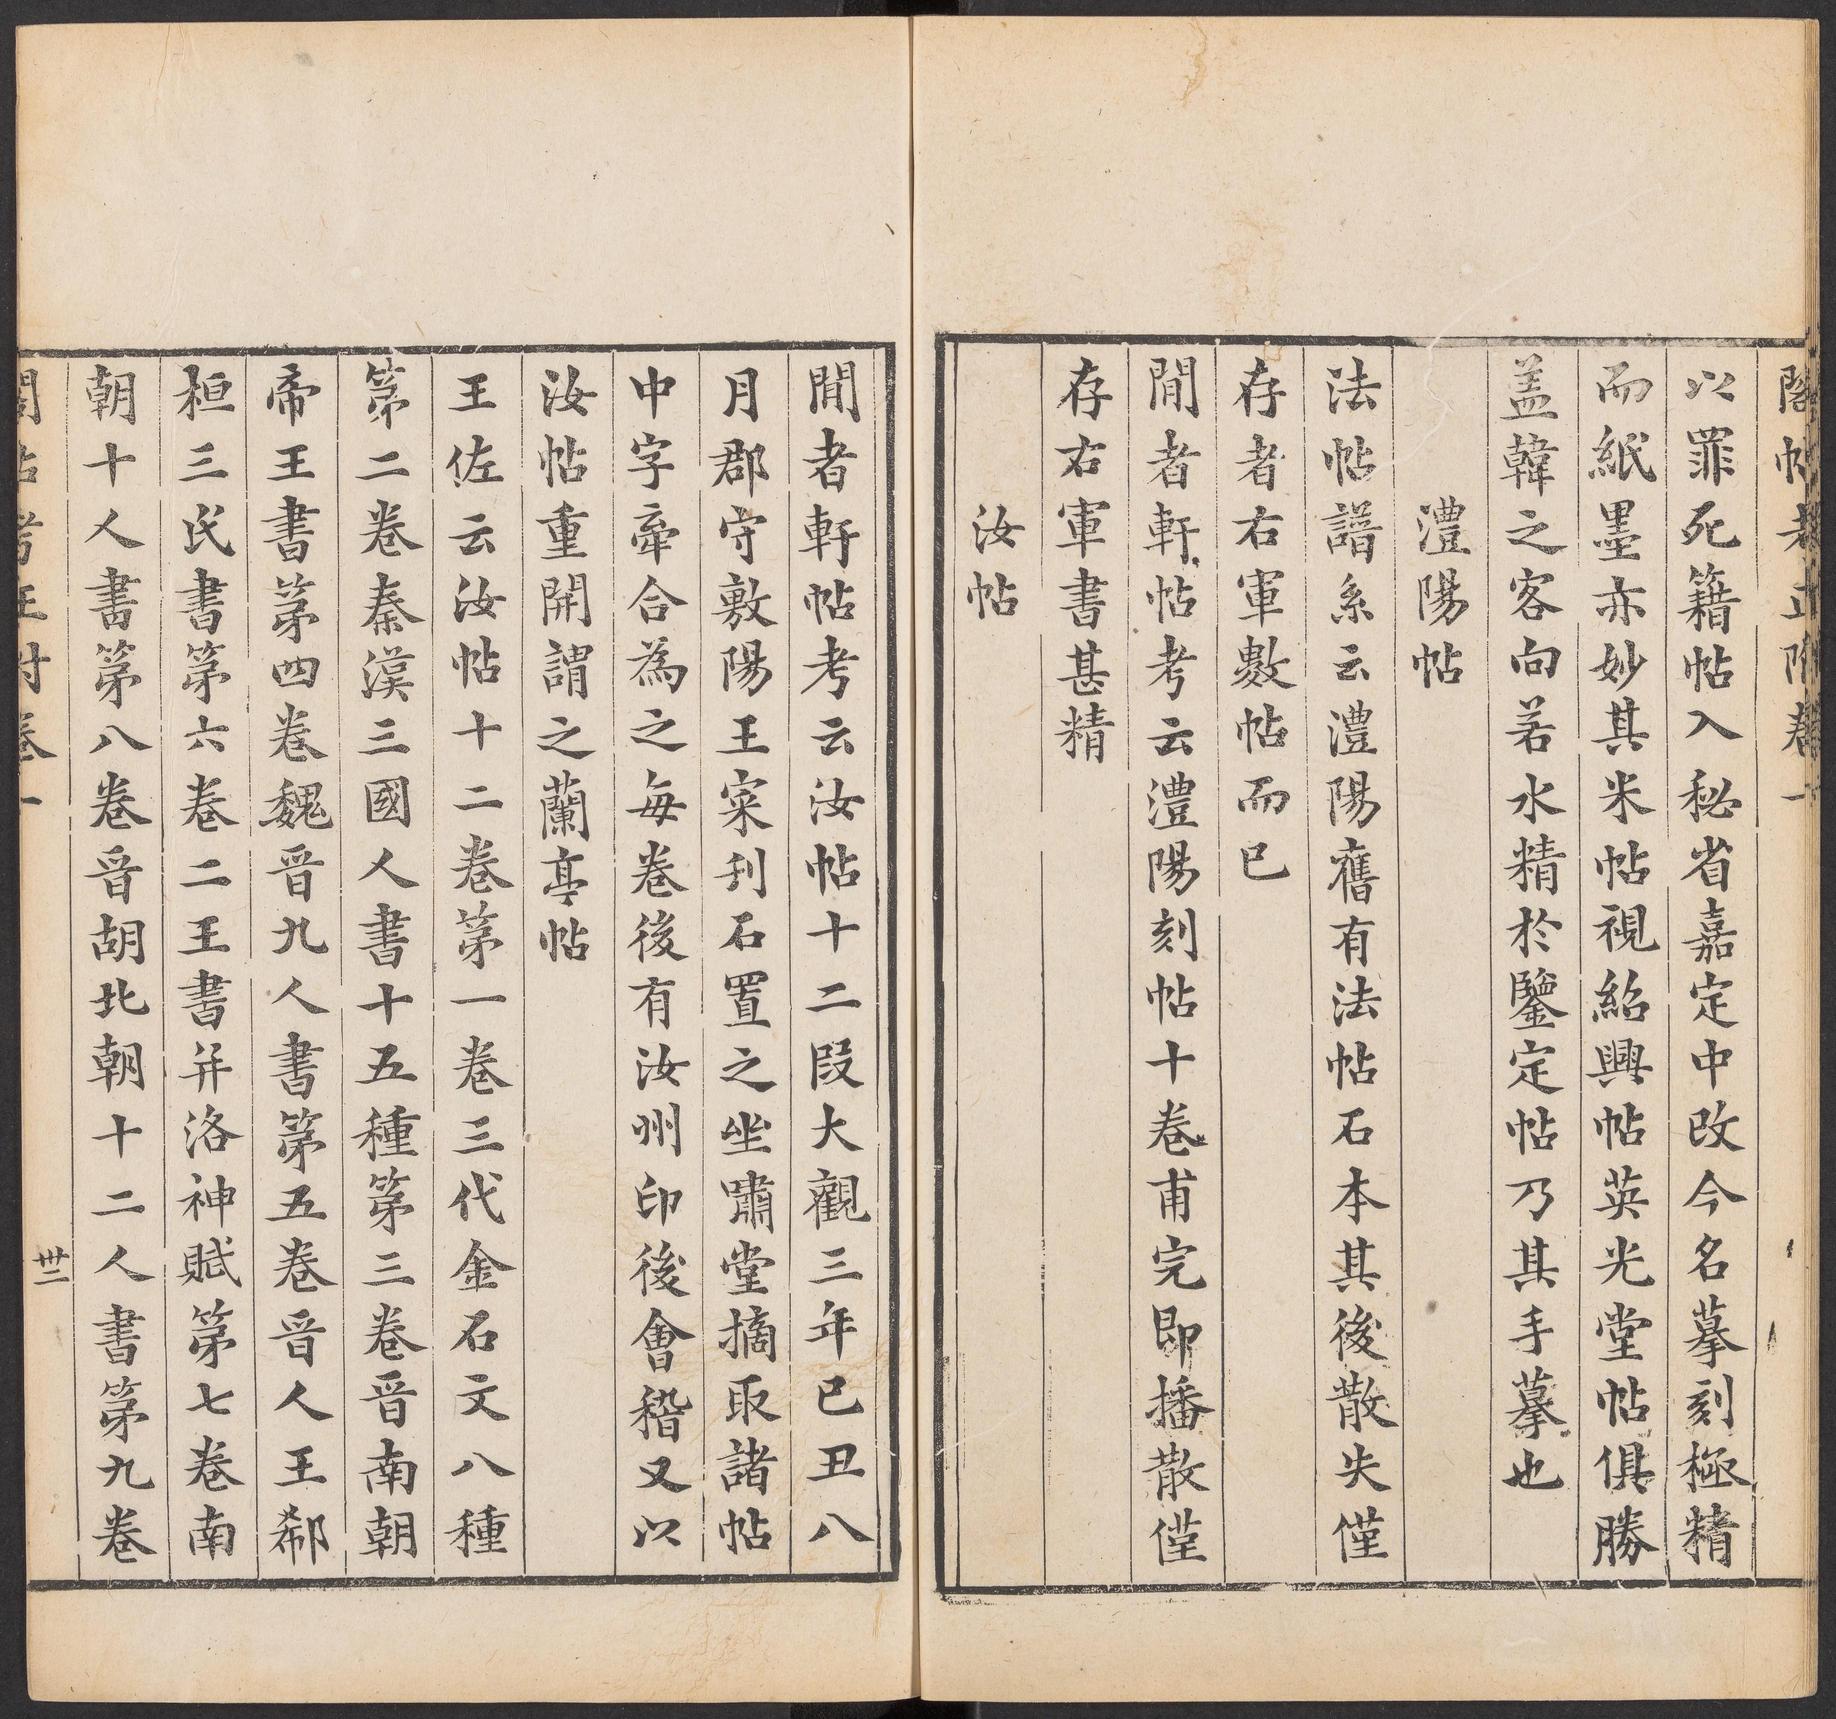 以罪死籍帖入秘省嘉定中改今名摹刻極精
而紙墨亦妙其米帖視紹興帖英光堂帖俱勝
盖韓之客向若水精於鑒定帖乃其手摹也
澧陽帖
法帖譜系云澧陽舊有法帖石本其後散失僅
存者右軍數帖而已
閒者軒帖考云澧陽刻帖十卷甫完即播散僅
存右軍書甚精
汝帖
閒者軒帖考云汝帖十二段大觀三年己丑八
月郡守敷陽王寀刋石置之坐嘯堂摘取諸帖
中字牽合為之每卷後有汝州印後會稽又以
汝帖重開謂之蘭亭帖
王佐云汝帖十二卷第一卷三代金石文八種
第二卷秦漢三國人書十五種第三卷晉南朝
帝王書第四卷魏晉九人書第五卷晉人王郗
桓三氏書第六卷二王書并洛神賦第七卷南
朝十人書第八卷晉胡北朝十二人書第九卷
卅二